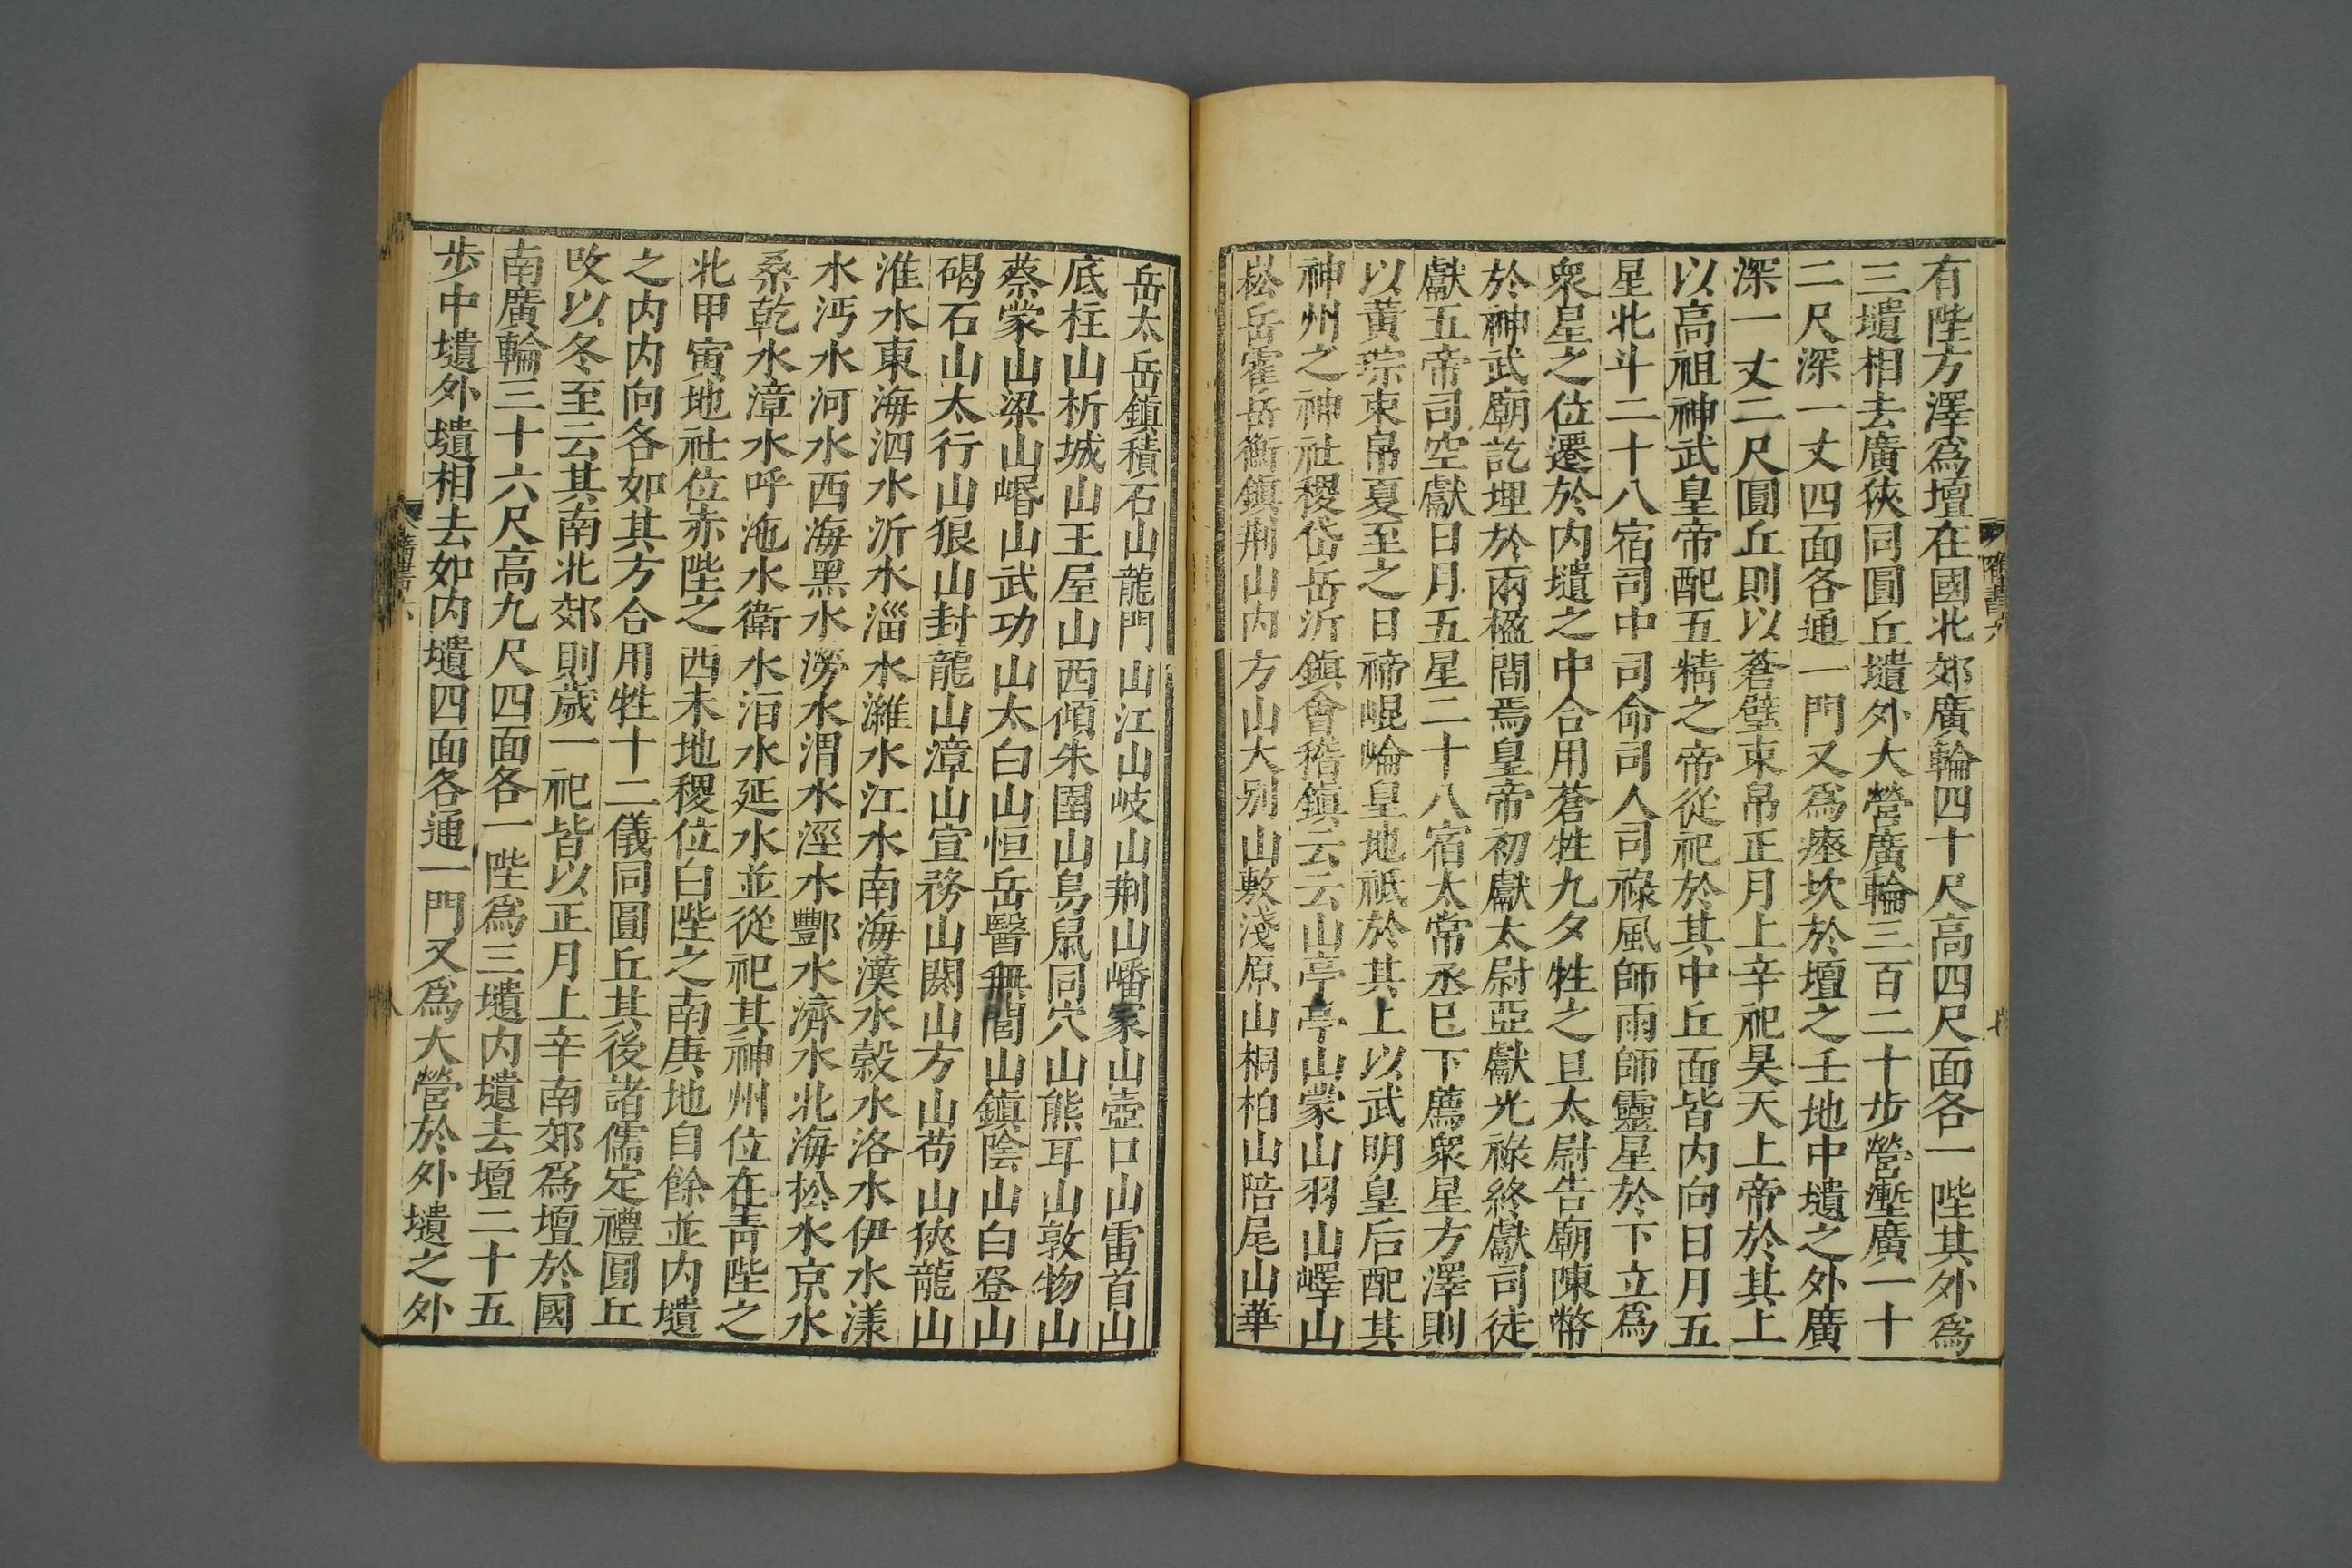 有陛方澤爲壇在國北郊廣輪四十尺高四尺面各一陛其外爲
三壝相去廣狹同圓丘壝外大營廣輪三百二十步營塹廣一十
二尺深一丈四面各通一門又爲瘞坎於壇之壬地中壝之外廣
深一丈二尺圓丘則以蒼璧束帛正月上辛祀昊天上帝於其上
以高祖神武皇帝配五精之帝從祀於其中丘面皆内向日月五
星北斗二十八宿司中司命司人司祿風師雨師靈星於下丘爲
衆星之位遷於内壝之中合用蒼牲九夕牲之旦太尉告廟陳幣
於神武廟訖埋於兩楹間焉皇帝初獻太尉亞獻光祿終獻司徒
獻五帝司空獻日月五星二十八宿太常丞已下薦衆星方澤則
以黃琮束帛夏至之日禘崐崘皇地祗於其上以武明皇后配其
神州之神社稷岱岳沂鎮會稽鎮云云山亭亭山蒙山羽山嶧山
崧岳霍岳衡鎮荆山内方山大别山敷淺原山桐柏山陪尾山華
岳太岳鎮積石山龍門山江山岐山荆山嶓冢山壺口山雷首山
底柱山析城山王屋山西傾朱圉山鳥鼠同穴山熊耳山敦物山
蔡蒙山梁山岷山武功山太白山恒岳醫無閭山鎮陰山白登山
碣石山太行山狼山封龍山漳山宣務山閼山方山苟山狹龍山
淮水東海泗水沂水淄水濰水江水南海漢水穀水洛水伊水漾
水沔水河水西海黑水澇水渭水涇水酆水濟水北海松水京水
桑乾水漳水呼沲水衛水洹水延水並從祀其神州位在青陛之
北甲寅地社位赤陛之西未地稷位白陛之南庚地自餘並内壝
之内内向各如其方合用牲十二儀同圓丘其後諸儒定禮圓丘
改以冬至云其南北郊則歲一祀皆以正月上辛南郊爲壇於國
南廣輪三十六尺高九尺四面各一陛爲三壝内壝去壇二十五
步中壝外壝相去如内壝四面各通一門又爲大營於外壝之外